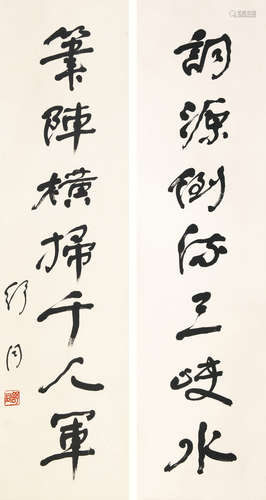 詞源倒流三峽水
筆陣橫掃千人軍
舒同